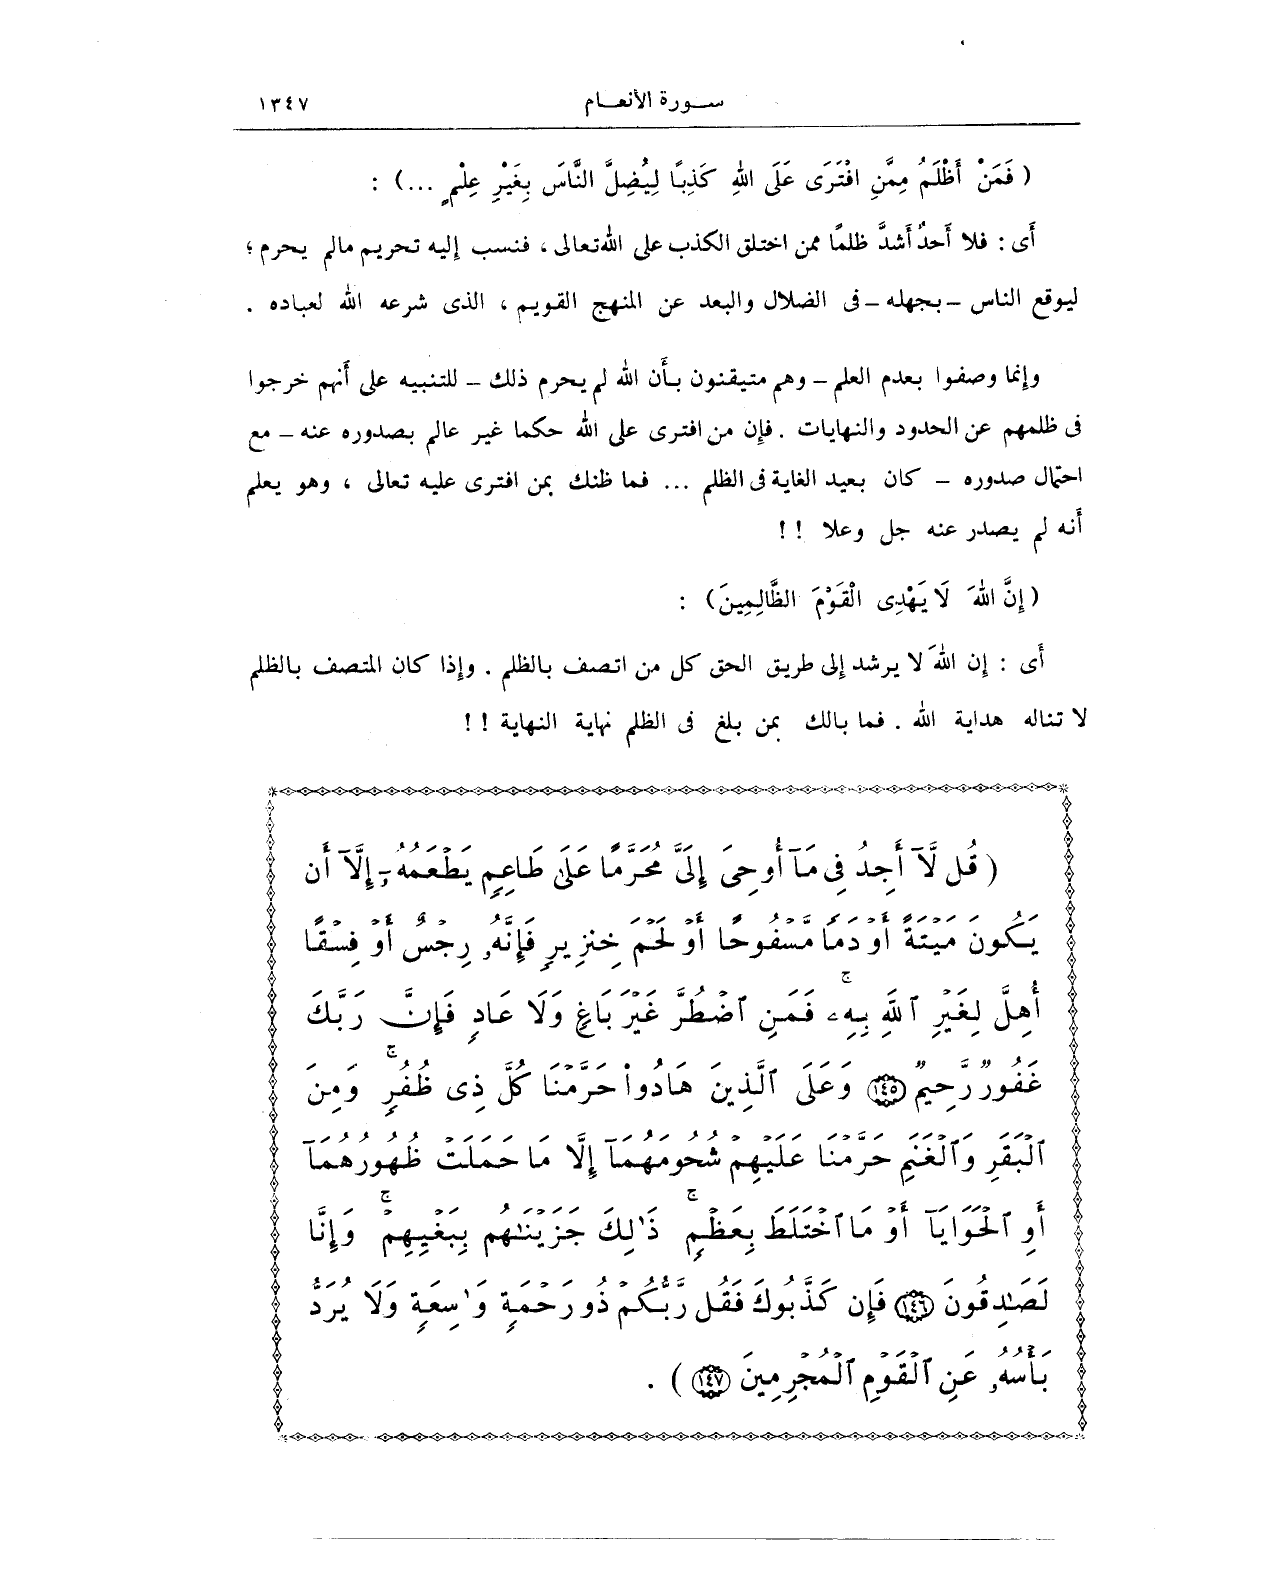 سورة الأنعام ١٣٤٧
( فَمَنْ أَظْلَمُ مِمَّنِ افْتَرَى عَلَى اللهِ كَذِبًا لِيُضِلَّ النَّاسَ بِغَيْرِ عِلْمٍ ...) :
أى : فلا أَحدٌ أشدَّ ظلمًا ممن اختلق الكذب على الله تعالى ، فنسب إليه تحريم مالم يحرم ؛
ليوقع الناس – بجهله – فى الضلال والبعد عن المنهج القويم ، الذى شرعه الله لعباده .
وإنما وصفوا بعدم العلم – وهم متيقنون بأَن الله لم يحرم ذلك – للتنبيه على أَنهم خرجوا
فى ظلمهم عن الحدود والنهايات . فإن من افترى على الله حكما غير عالم بصدوره عنه – مع
احتمال صدوره – كان بعيد الغاية فى الظلم ... فما ظنك بمن افترى عليه تعالى ، وهو يعلم
أَنه لم يصدر عنه جل وعلا ! !
( إِنَّ اللهَ لَا يَهْدِى الْقَوْمَ الظَّالِمِينَ ) :
أى : إن اللهَ لا يرشد إلى طريق الحق كل من اتصف بالظلم . وإذا كان المتصف بالظلم
لا تناله هداية الله . فما بالك بمن بلغ فى الظلم نهاية النهاية ! !
( قُل لَّآ أَجِدُ فِى مَآ أُوحِىَ إِلَىَّ مُحَرَّمًا عَلَىٰ طَاعِمٍ يَطْعَمُهُۥٓ إِلَّآ أَن
يَكُونَ مَيْتَةً أَوْ دَمًا مَّسْفُوحًا أَوْ لَحْمَ خِنزِيرٍ فَإِنَّهُۥ رِجْسٌ أَوْ فِسْقًا
أُهِلَّ لِغَيْرِ ٱللَّهِ بِهِۦ ۚ فَمَنِ ٱضْطُرَّ غَيْرَ بَاغٍ وَلَا عَادٍ فَإِنَّ رَبَّكَ
غَفُورٌ رَّحِيمٌ ١٤٥ وَعَلَى ٱلَّذِينَ هَادُوا۟ حَرَّمْنَا كُلَّ ذِى ظُفُرٍ ۚ وَمِنَ
ٱلْبَقَرِ وَٱلْغَنَمِ حَرَّمْنَا عَلَيْهِمْ شُحُومَهُمَآ إِلَّا مَا حَمَلَتْ ظُهُورُهُمَآ
أَوِ ٱلْحَوَايَآ أَوْ مَا ٱخْتَلَطَ بِعَظْمٍ ۚ ذَٰلِكَ جَزَيْنَٰهُم بِبَغْيِهِمْ ۚ وَإِنَّا
لَصَٰدِقُونَ ١٤٦ فَإِن كَذَّبُوكَ فَقُل رَّبُّكُمْ ذُو رَحْمَةٍ وَٰسِعَةٍ وَلَا يُرَدُّ
بَأْسُهُۥ عَنِ ٱلْقَوْمِ ٱلْمُجْرِمِينَ ١٤٧ ) .